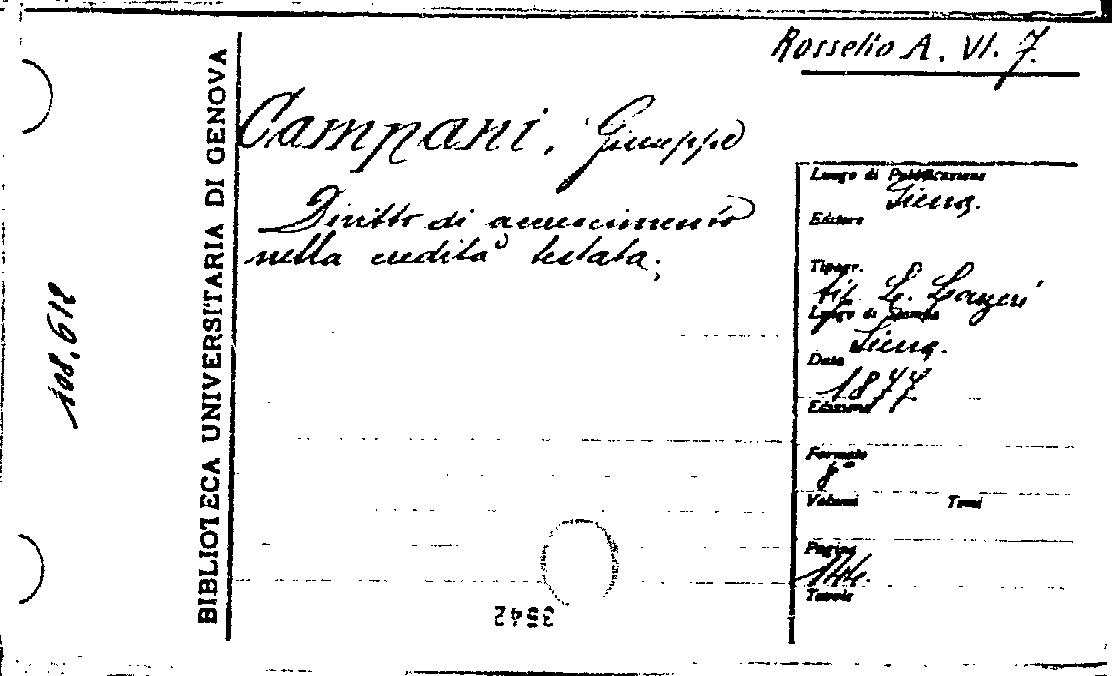 Rosselio A. VI. 7.
BIBLIOTECA UNIVERSITARIA DI GENOVA
108.612
Campani, Giuseppe
Diritto di accrescimento
nella eredità testata;
Luogo di Pubblicazione
Siena.
Editore
Tipogr.
tip. L. Lazzeri
Luogo di Stampa
Siena.
Data
1877
Edizione
Formato
8°
Volumi Tomi
Pagine
144.
Tavole
3542